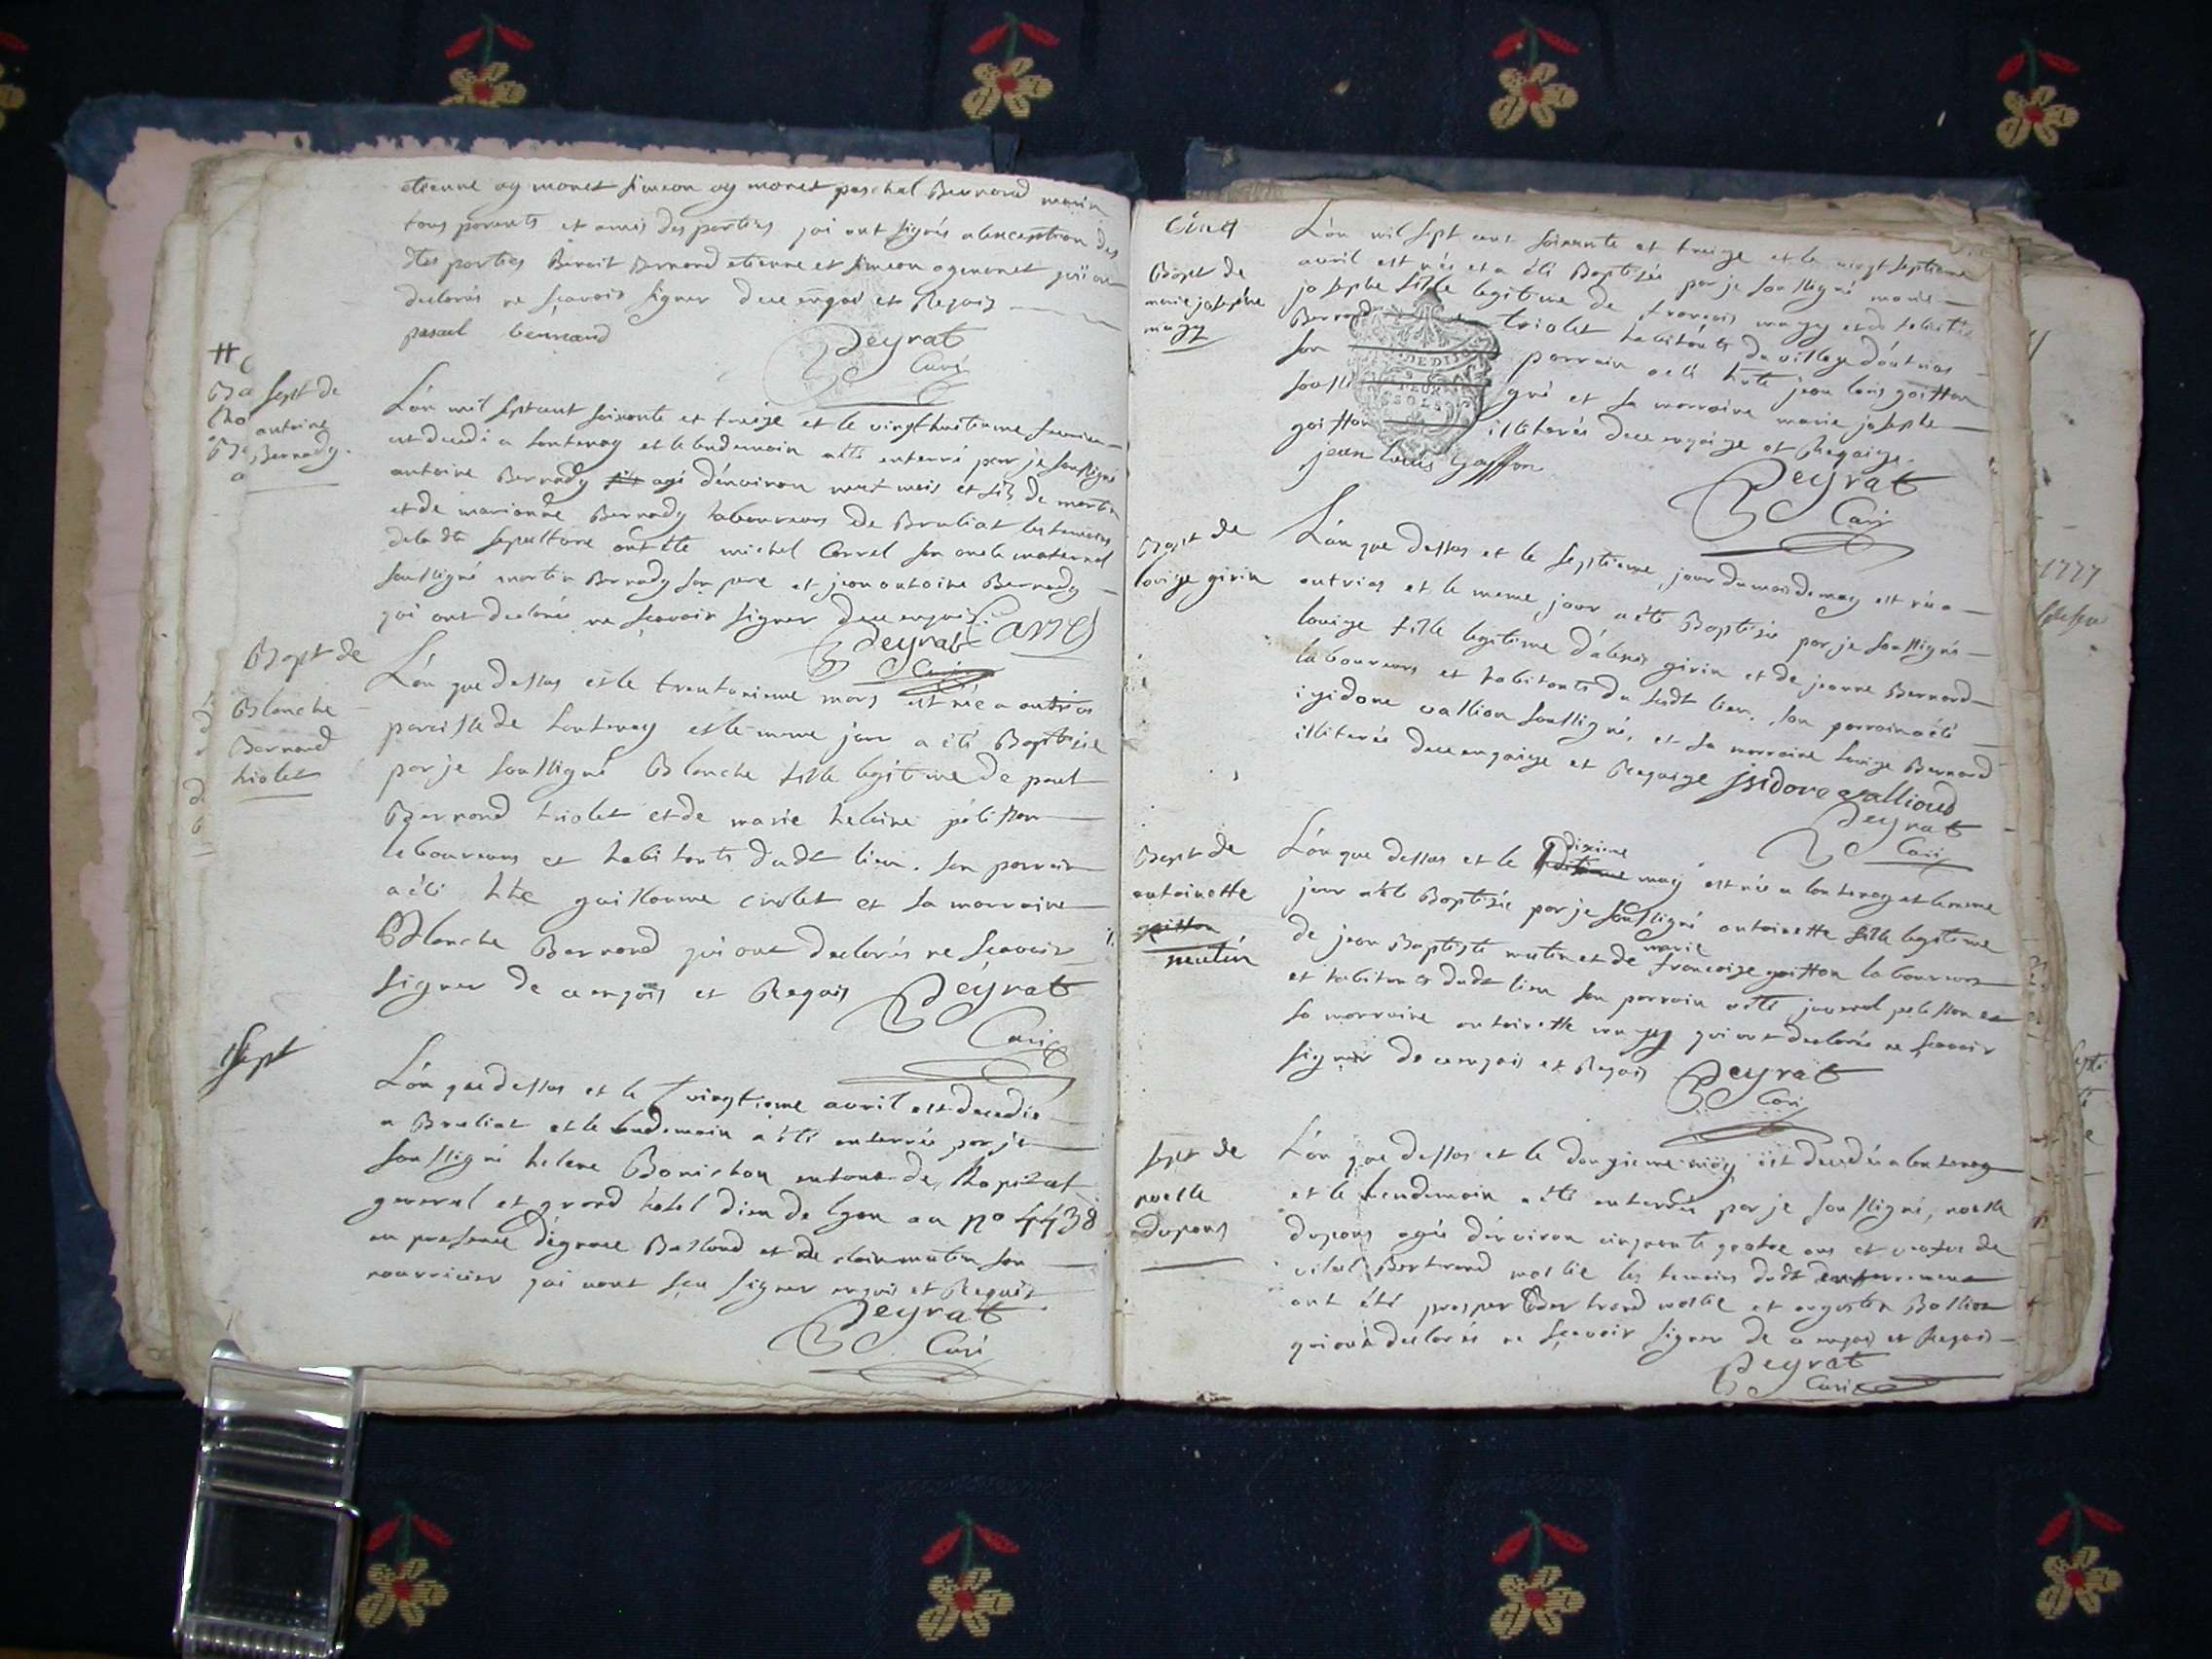 etienne aymonet simeon aymonet paschal Bernard marin
tous parents et amis des parties qui ont signés a lexception des
dtes parties Benoit Bernard etienne et simeon aymonet qui ont
declarés ne sçavoir signer de ce enquis et Requis
pascal bernard
Peyrat
Curé
Sept de
antoine
Bernady.
L'an mil sept cent soixante et treize et le vingthuitieme
est decedé a lantenay et le lendemain a été enterré par je soussigné
antoine Bernady agé d'environ neuf mois et fils de martin
et de marianne Bernady laboureurs de Bruliat les temoins
de la dte sepulture ont été michel Carrel son oncle maternel
soussigné martin Bernady son pere et jean antoine Bernady
qui ont declarés ne sçavoir signer de ce enquis
Peyrat
Curé
Bapt de
Blanche
Bernard
triolet
L'an que dessus et le trentunieme mars est née a outrias
paroisse de lantenay et le meme jour a été Baptisée
par je soussigné Blanche fille legitime de paul
Bernard triolet et de marie helaine pélisson
laboureurs et habitants dudt lieu. son parrain
a été hte guillaume triolet et sa marraine
Blanche Bernard qui ont declarés ne sçavoir
signer de ce enquis et Requis Peyrat
Curé
Sept
L'an que dessus et le vingtieme avril est decedée
a Bruliat et le lendemain a été enterrée par je
soussigné helene Bonichon enfant de l'hopital
general et grand hotel dieu de lyon au no 4438
en presence d'ignace Balland et de clair mutin son
nourricier qui n'ont sçu signer enquis et Requis
Peyrat
Curé
cinq
Bapt de
marie josephe
mugy
L'an mil sept cent soixante et treize et le vingt septieme
avril est née et a été Baptisée par je soussigné marie
josephe fille legitime de françois mugy et de
Bernard triolet habitants du village d'outrias
son parrain a été hte jean louis goiffon
soussi gné et sa marraine marie josephe
goiffon illiterée de ce enquise et Requise.
jean louis goiffon
Peyrat
Curé
Bapt de
louise girin
L'an que dessus et le septieme jour du mois de may est née a
outrias et le meme jour a été Baptisée par je soussigné
louise fille legitime d'alexis girin et de jeanne Bernard
laboureurs et habitants du susdt lieu. son parrain a été
isidore vallion soussigné, et sa marraine louise Bernard
illiterée de ce enquise et Requise Isidore vallioud
Peyrat
Curé
Bapt de
antoinette
goiffon
mutin
L'an que dessus et le dixieme may est née a lantenay et le meme
jour a été Baptisée par je soussigné antoinette fille legitime
de jean Baptiste mutin et de marie francoise goiffon laboureurs
et habitants dudt lieu son parrain a été juvenal pelisson et
sa marraine antoinette mugy qui ont declarés ne sçavoir
signer de ce enquis et Requis Peyrat
Curé
sept de
noelle
dupont
L'an que dessus et le douzieme may est decedée a lantenay
et le lendemain a été enterrée par je soussigné, noelle
dupont agée d'environ cinquante quatre ans et veufve de
vital Bertrand les temoins dudt enterrement
ont été prosper Bertrand et augustin Ballion
qui ont declarés ne sçavoir signer de ce enquis et Requis
Peyrat
Curé
1777